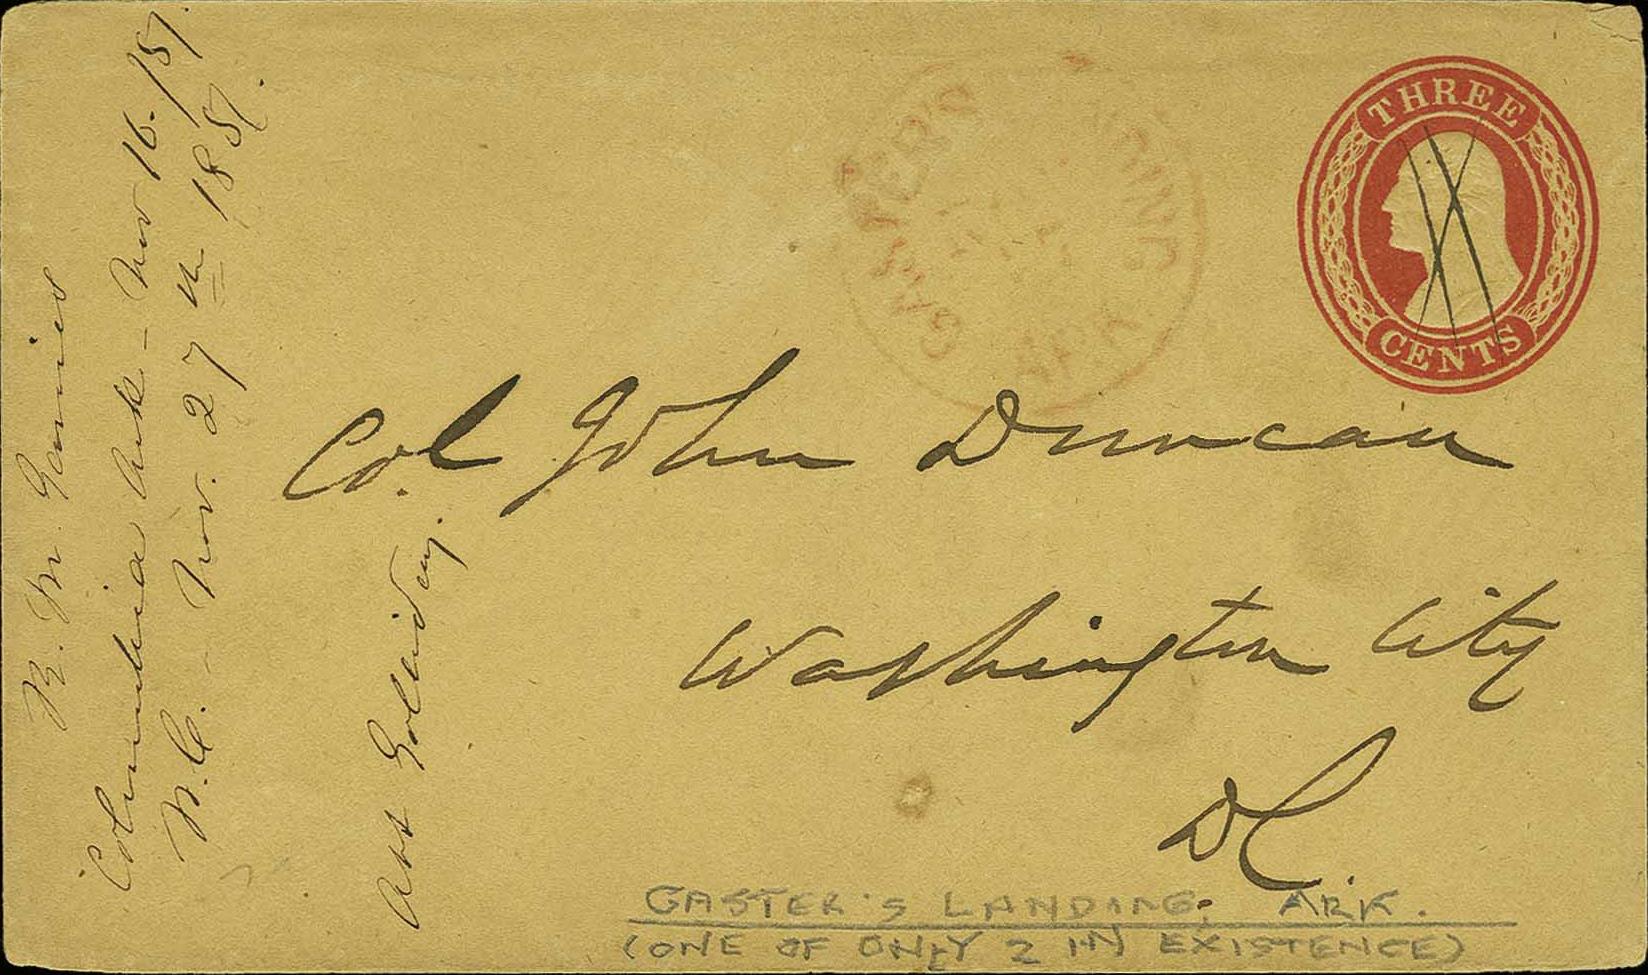 THREE
CENTS
GASTER'S LANDING
ARK
Col John Duncan
Washington City
DC
R. M. Gaines
Columbia Ark - Nov 16. /57.
N.C. - Nov. 27th 1857.
GASTER'S LANDING, ARK.
(ONE OF ONLY 2 IN EXISTENCE)